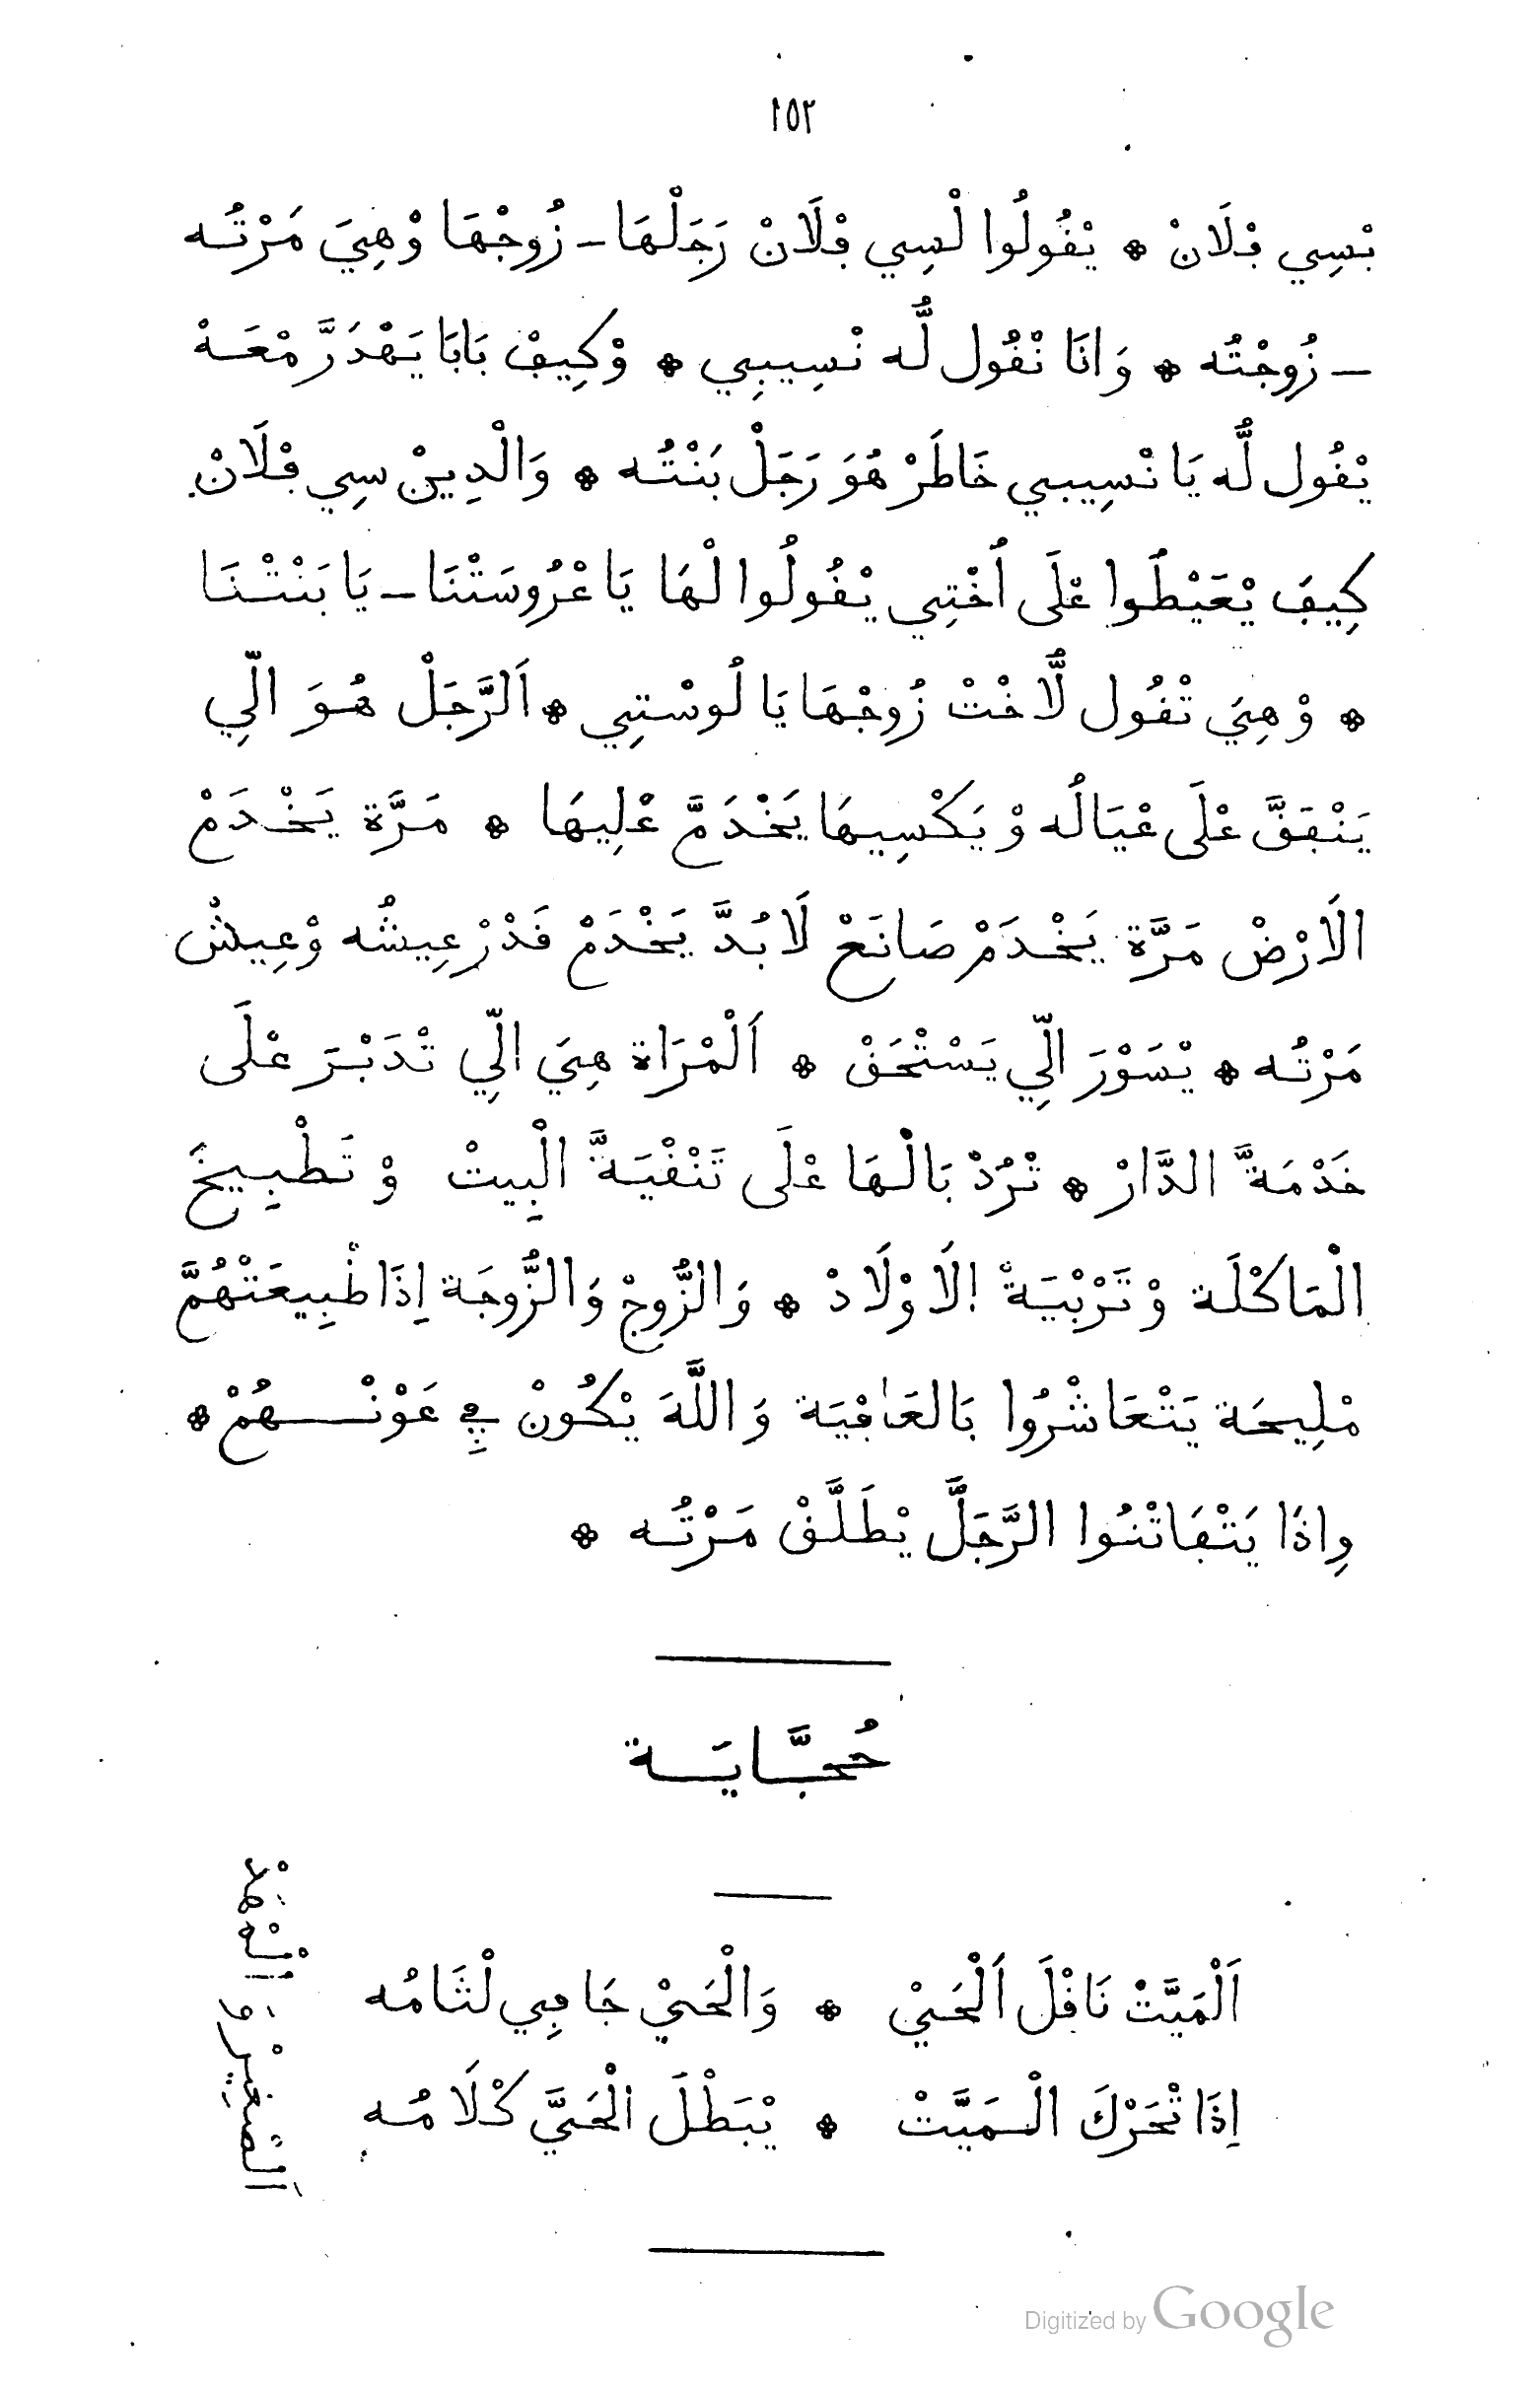 ١٥٢
بْسِي ڢْلَانْ * يْڧُولُوا لْسِي ڢْلَانْ رَجَلْهَا - زُوجْهَا وْهِيَ مَرْتُه
- زُوجْتُه * وَانَا نْڧُول لُّه نْسِيبِي * وْكِيڢْ بَابَا يَهْدَرَّ مْعَهْ
يْڧُول لُّه يَا نْسِيبِي خَاطَرْ هُوَ رَجَلْ بَنْتُه * وَالْدِينْ سِي ڢْلَانْ
كِيڢَ يْعَيْطُوا عْلَى اُخْتِي يْڧُولُوا لْهَا يَا عْرُوسَتْنَا - يَا بَنْتْنَا
* وْ هِيَ تْڧُول لُّاخْتْ زُوجْهَا يَا لُوسْتِي * اَلرَّجَلْ هُوَ الِّي
يَنْڢَڧَّ عْلَى عْيَالُه وْ يَكْسِيهَا يَخْدَمَّ عْلِيهَا * مَرَّة يَخْدَمْ
الَارْضْ مَرَّة يَخْدَمْ صَانَعْ لَا بُدَّ يَخْدَمْ ڧَدْرْ عِيشُه وْعِيشْ
مَرْتُه * يْسَوْرَ الِّي يَسْتْحَڧْ * اَلْمْرَاة هِيَ الِّي تْدَبْرَ عْلَى
خَدْمَةَّ الدَّارْ * تْرُدْ بَالْهَا عْلَى تَنْڧْيَةَّ الْبِيتْ وْ تَطْبِيخَ
الْمَاكْلَة وْ تَرْبْيَةْ الَاوْلَادْ * وَالزُّوجْ وَالزُّوجَة إِذَا طْبِيعَتْهُمَّ
مْلِيحَة يَتْعَاشْرُوا بَالعَاڢْيَة وَاللَّهَ يْكُونْ ڢِي عَوْنْهُمْ *
وِاذَا يَتْڢَاتْنُوا الرَّجَلَّ يْطَلَّڧْ مَرْتُه *
حُجَّايَة
اَلْمَيَّتْ نَاڧْلَ اَلْحَيْ * وَالْحَيْ جَاڢِي لْثَامُه
إِذَا تْحَرْكَ الْمَيَّتْ * يْبَطْلَ الْحَيَّ كْلَامُه
اَلصْغِيرْ وَ
Digitized by Google